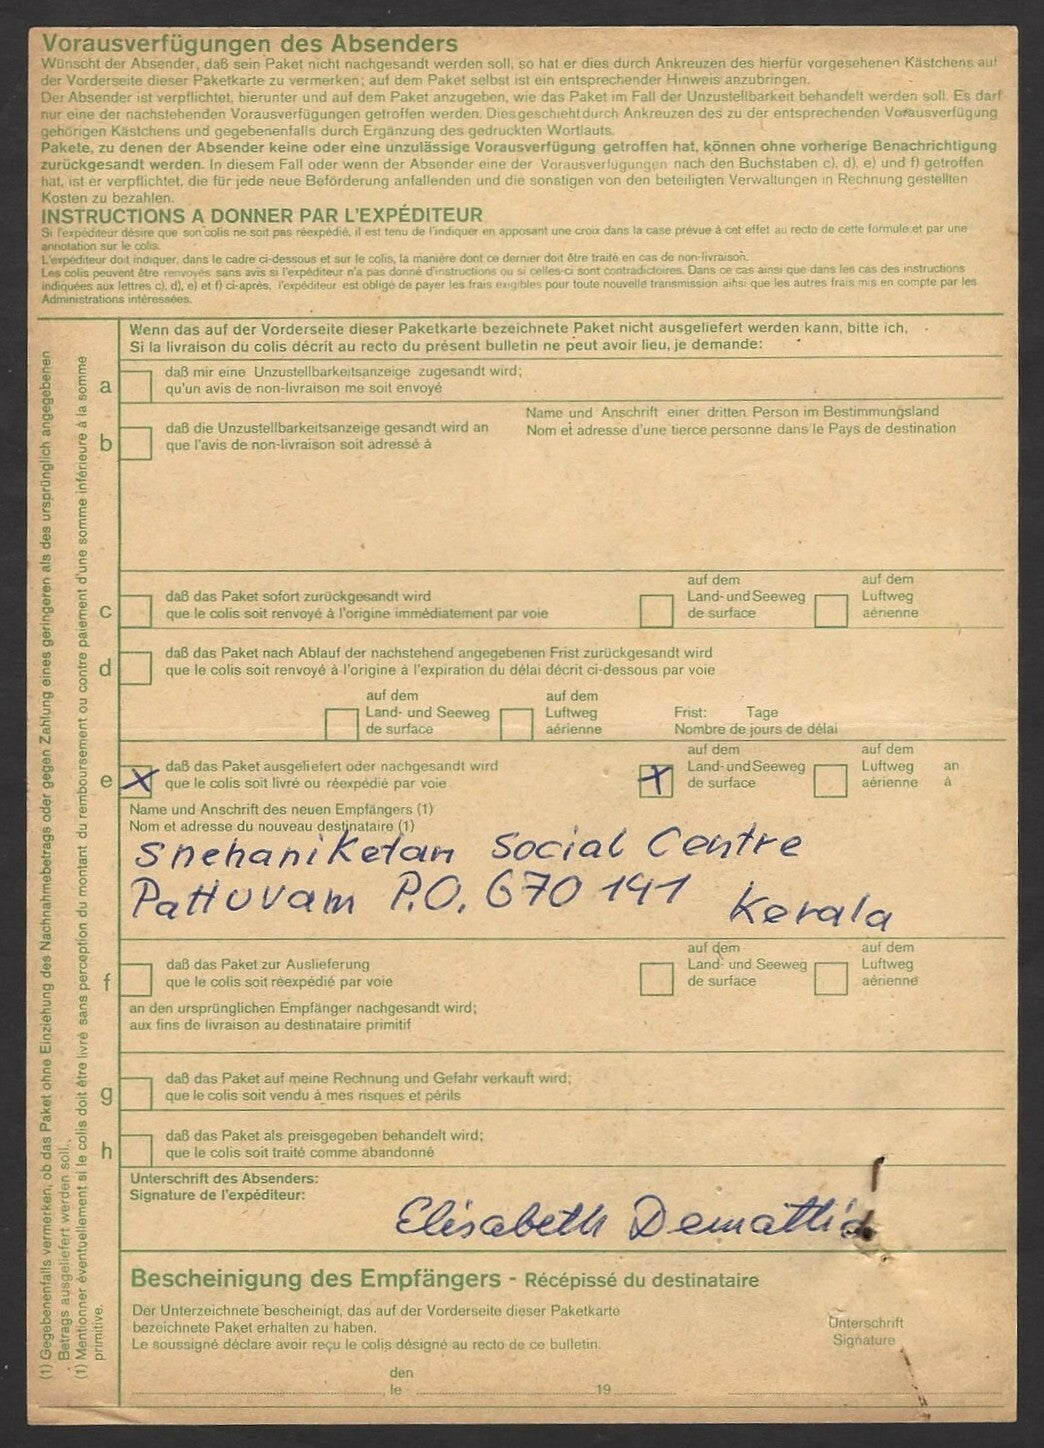 Vorausverfügungen des Absenders
Wünscht der Absender, daß sein Paket nicht nachgesandt werden soll, so hat er dies durch Ankreuzen des hierfür vorgesehenen Kästchens auf
der Vorderseite dieser Paketkarte zu vermerken; auf dem Paket selbst ist ein entsprechender Hinweis anzubringen.
Der Absender ist verpflichtet, hierunter und auf dem Paket anzugeben, wie das Paket im Fall der Unzustellbarkeit behandelt werden soll. Es darf
nur eine der nachstehenden Vorausverfügungen getroffen werden. Dies geschieht durch Ankreuzen des zu der entsprechenden Vorausverfügung
gehörigen Kästchens und gegebenenfalls durch Ergänzung des gedruckten Wortlauts.
Pakete, zu denen der Absender keine oder eine unzulässige Vorausverfügung getroffen hat, können ohne vorherige Benachrichtigung
zurückgesandt werden. In diesem Fall oder wenn der Absender eine der Vorausverfugungen nach den Buchstaben c), d), e) und f) getroffen
hat, ist er verpflichtet, die für jede neue Beförderung anfallenden und die sonstigen von den beteiligten Verwaltungen in Rechnung gestellten
Kosten zu bezahlen.
INSTRUCTIONS A DONNER PAR L'EXPÉDITEUR
Si l'expéditeur désire que son colis ne soit pas réexpédié, il est tenu de l'indiquer en apposant une croix dans la case prévue à cet effet au recto de cette formule et par une
annotation sur le colis.
L'expéditeur doit indiquer, dans le cadre ci-dessous et sur le colis, la manière dont ce dernier doit être traité en cas de non-livraison.
Les colis peuvent être renvoyés sans avis si l'expéditeur n'a pas donné d'instructions ou si celles-ci sont contradictoires. Dans ce cas ainsi que dans les cas des instructions
indiquées aux lettres c), d), e) et f) ci-après, l'expéditeur est obligé de payer les frais exigibles pour toute nouvelle transmission ainsi que les autres frais mis en compte par les
Administrations intéressées.
Wenn das auf der Vorderseite dieser Paketkarte bezeichnete Paket nicht ausgeliefert werden kann, bitte ich,
Si la livraison du colis décrit au recto du présent bulletin ne peut avoir lieu, je demande:
a daß mir eine Unzustellbarkeitsanzeige zugesandt wird;
qu'un avis de non-livraison me soit envoyé
b daß die Unzustellbarkeitsanzeige gesandt wird an
que l'avis de non-livraison soit adressé à
Name und Anschrift einer dritten Person im Bestimmungsland
Nom et adresse d'une tierce personne dans le Pays de destination
c daß das Paket sofort zurückgesandt wird
que le colis soit renvoyé à l'origine immédiatement par voie
auf dem
Land- und Seeweg
de surface
auf dem
Luftweg
aérienne
d daß das Paket nach Ablauf der nachstehend angegebenen Frist zurückgesandt wird
que le colis soit renvoyé à l'origine à l'expiration du délai décrit ci-dessous par voie
auf dem
Land- und Seeweg
de surface
auf dem
Luftweg
aérienne
Frist: Tage
Nombre de jours de délai
e X daß das Paket ausgeliefert oder nachgesandt wird
que le colis soit livré ou réexpédié par voie
X auf dem
Land- und Seeweg
de surface
auf dem
Luftweg
aérienne
an
à
Name und Anschrift des neuen Empfängers (1)
Nom et adresse du nouveau destinataire (1)
Snehaniketan Social Centre
Pattuvam P.O. 670 141 Kerala
f daß das Paket zur Auslieferung
que le colis soit réexpédié par voie
auf dem
Land- und Seeweg
de surface
auf dem
Luftweg
aérienne
an den ursprünglichen Empfänger nachgesandt wird;
aux fins de livraison au destinataire primitif
g daß das Paket auf meine Rechnung und Gefahr verkauft wird;
que le colis soit vendu à mes risques et périls
h daß das Paket als preisgegeben behandelt wird;
que le colis soit traité comme abandonné
Unterschrift des Absenders:
Signature de l'expéditeur:
Elisabeth
Bescheinigung des Empfängers - Récépissé du destinataire
Der Unterzeichnete bescheinigt, das auf der Vorderseite dieser Paketkarte
bezeichnete Paket erhalten zu haben.
Le soussigné déclare avoir reçu le colis désigné au recto de ce bulletin.
Unterschrift
Signature
den
le 19
(1) Gegebenenfalls vermerken, ob das Paket ohne Einziehung des Nachnahmebetrags oder gegen Zahlung eines geringeren als des ursprünglich angegebenen
Betrags ausgeliefert werden soll.
(1) Mentionner éventuellement si le colis doit être livré sans perception du montant du remboursement ou contre paiement d'une somme inférieure à la somme
primitive.